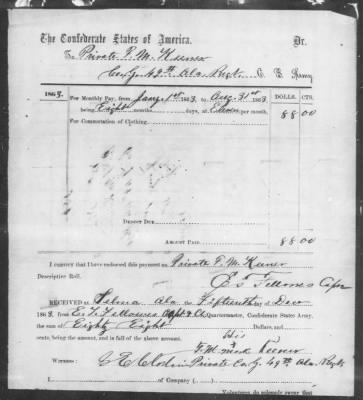 The Confederate States of America, Dr.
To Private F. M. Keener
Co. G. 49th Ala. Regt. C. S. Army
1863. DOLLS. CTS.
For Monthly Pay, from Jany. 1st 1863 to Aug. 31st 1863
being Eight months days, at Eleven per month, 88 00
For Commutation of Clothing,
DEDUCT DUE
AMOUNT PAID, 88 00
I CERTIFY that I have endorsed this payment on Private F. M. Keener
Descriptive Roll.
E. F. Fellowes Capt
RECEIVED at Selma Ala Fifteenth Dec
1863, from E. F. Fellowes Capt & Quartermaster, Confederate States Army,
the sum of Eighty Eight Dollars, and
cents, being the amount, and is full of the above account.
his
F. M. mark Keener
WITNESS: Private Co. G. 49th Ala. Regt
I of Company ( ),
Volunteers do solemnly swear that